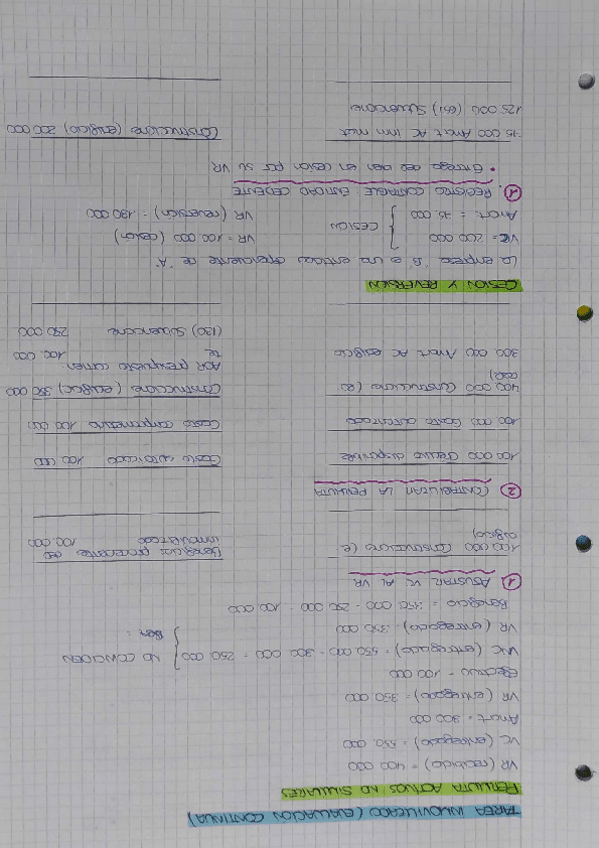 TAREA INMOVILIZADO (EVALUACIÓN CONTINUA)
PERMUTA ACTIVOS NO SIMILARES
VR (recibido) = 400 000
VC (entregado) = 550 000
Amort = 300 000
VR (entregado) = 350 000
Efectivo = 100 000
VNC (entregado) = 550 000 - 300 000 = 250 000 } NO COINCIDEN
VR (entregado) = 350 000
Beneficio = 350 000 - 250 000 = 100 000
① AJUSTAR VC AL VR
100 000 Construcciones (e
edificio)
Beneficios procedentes del
inmovilizado 100 000
② CONTABILIZAR LA PERMUTA
100 000 Crédito disponible
Gasto autorizado 100 000
100 000 Gasto autorizado
Gasto comprometido 100 000
400 000 Construcciones (
Construcciones (edificio) 550 000
300 000 Amort AC edificio
AOR presupuesto corriente 100 000
(130) Subvenciones 250 000
CESIÓN Y REVERSIÓN
La empresa "B" es una entidad dependiente de "A"
VC = 200 000
Amort. = 75 000
} CESIÓN
VR = 100 000 (cesión)
VR (reversión) = 190 000
① REGISTRO CONTABLE ENTIDAD CEDENTE
• Entrega del bien en cesión por su VR
75 000 Amort AC Inm mat
125 000 (651) Subvenciones
Construcciones (edificio) 200 000